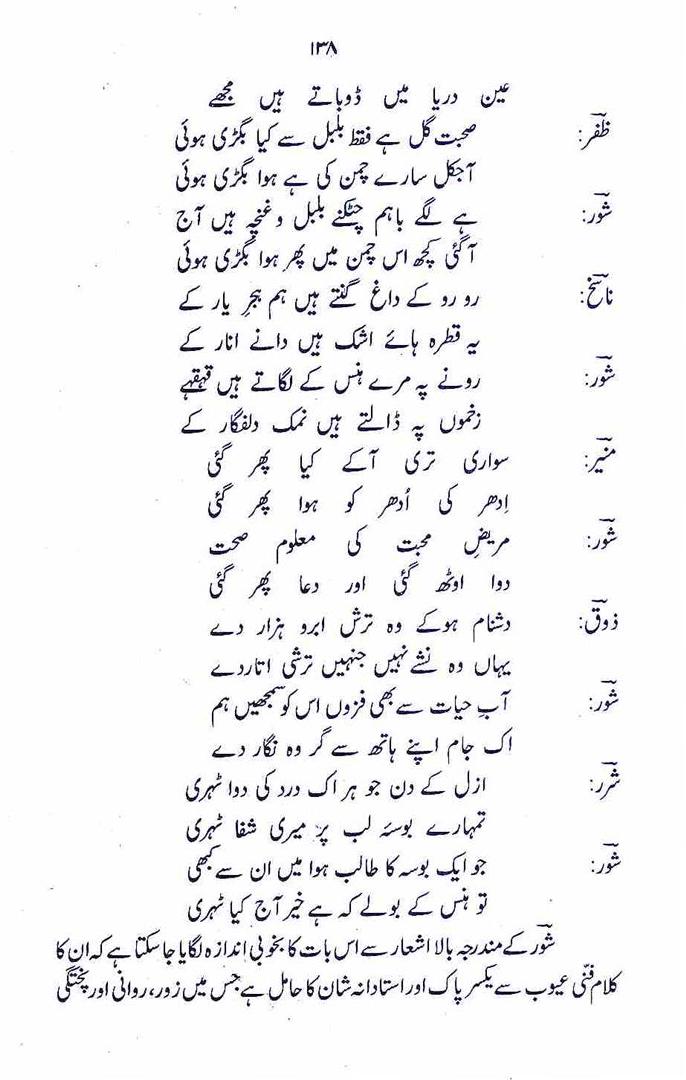 ۱۳۸
عین دریا میں ڈوباتے ہیں مجھے
ظفر: صحبت گل ہے فقط بلبل سے کیا بگڑی ہوئی
آجکل سارے چمن کی ہے ہوا بگڑی ہوئی
شور: ہے لگے باہم چٹکنے بلبل و غنچہ ہیں آج
آگئی کچھ اس چمن میں پھر ہوا بگڑی ہوئی
ناسخ: رو رو کے داغ گنتے ہیں ہم ہجرِ یار کے
یہ قطرہ ہائے اشک ہیں دانے انار کے
شور: رونے پہ مرے ہنس کے لگاتے ہیں قہقہے
زخموں پہ ڈالتے ہیں نمک دلفگار کے
منیر: سواری تری آکے کیا پھر گئی
اِدھر کی اُدھر کو ہوا پھر گئی
شور: مریضِ محبت کی معلوم صحت
دوا اوٹھ گئی اور دعا پھر گئی
ذوق: دشنام ہوکے وہ ترش ابرو ہزار دے
یہاں وہ نشے نہیں جنہیں ترشی اتاردے
شور: آبِ حیات سے بھی فزوں اس کو سمجھیں ہم
اک جام اپنے ہاتھ سے گر وہ نگار دے
شرر: ازل کے دن جو ہر اک درد کی دوا ٹہری
تمہارے بوسۂ لب پر میری شفا ٹہری
شور: جو ایک بوسہ کا طالب ہوا میں ان سے کبھی
تو ہنس کے بولے کہ ہے خیر آج کیا ٹہری
شور کے مندرجہ بالا اشعار سے اس بات کا بخوبی اندازہ لگایا جاسکتا ہے کہ ان کا
کلام فنّی عیوب سے یکسر پاک اور استادانہ شان کا حامل ہے جس میں زور، روانی اور پختگی